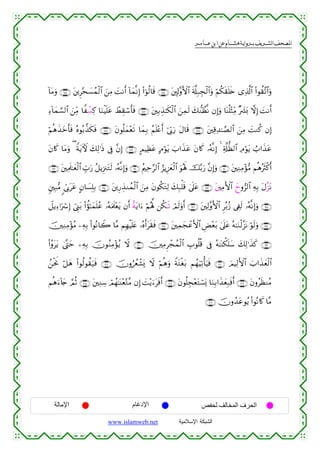 المصحف الشريف برواية هشام عن ابن عامر
وَٱتَّقُوا۟ ٱلَّذِى خَلَقَكُمْ وَٱلْجِبِلَّةَ ٱلْأَوَّلِينَ ۝ قَالُوٓا۟ إِنَّمَآ أَنتَ مِنَ ٱلْمُسَحَّرِينَ ۝ وَمَآ
أَنتَ إِلَّا بَشَرٌ مِّثْلُنَا وَإِن نَّظُنُّكَ لَمِنَ ٱلْكَٰذِبِينَ ۝ فَأَسْقِطْ عَلَيْنَا كِسْفًا مِّنَ ٱلسَّمَآءِ
إِن كُنتَ مِنَ ٱلصَّٰدِقِينَ ۝ قَالَ رَبِّىٓ أَعْلَمُ بِمَا تَعْمَلُونَ ۝ فَكَذَّبُوهُ فَأَخَذَهُمْ
عَذَابُ يَوْمِ ٱلظُّلَّةِ إِنَّهُۥ كَانَ عَذَابَ يَوْمٍ عَظِيمٍ ۝ إِنَّ فِى ذَٰلِكَ لَءَايَةً وَمَا كَانَ
أَكْثَرُهُم مُّؤْمِنِينَ ۝ وَإِنَّ رَبَّكَ لَهُوَ ٱلْعَزِيزُ ٱلرَّحِيمُ ۝ وَإِنَّهُۥ لَتَنزِيلُ رَبِّ ٱلْعَٰلَمِينَ ۝
نَزَّلَ بِهِ ٱلرُّوحَ ٱلْأَمِينَ ۝ عَلَىٰ قَلْبِكَ لِتَكُونَ مِنَ ٱلْمُنذِرِينَ ۝ بِلِسَانٍ عَرَبِىٍّ مُّبِينٍ
۝ وَإِنَّهُۥ لَفِى زُبُرِ ٱلْأَوَّلِينَ ۝ أَوَلَمْ تَكُن لَّهُمْ ءَايَةٌ أَن يَعْلَمَهُۥ عُلَمَٰٓؤُا۟ بَنِىٓ إِسْرَٰٓءِيلَ
۝ وَلَوْ نَزَّلْنَٰهُ عَلَىٰ بَعْضِ ٱلْأَعْجَمِينَ ۝ فَقَرَأَهُۥ عَلَيْهِم مَّا كَانُوا۟ بِهِۦ مُؤْمِنِينَ ۝
كَذَٰلِكَ سَلَكْنَٰهُ فِى قُلُوبِ ٱلْمُجْرِمِينَ ۝ لَا يُؤْمِنُونَ بِهِۦ حَتَّىٰ يَرَوُا۟
ٱلْعَذَابَ ٱلْأَلِيمَ ۝ فَيَأْتِيَهُم بَغْتَةً وَهُمْ لَا يَشْعُرُونَ ۝ فَيَقُولُوا۟ هَلْ نَحْنُ
مُنظَرُونَ ۝ أَفَبِعَذَابِنَا يَسْتَعْجِلُونَ ۝ أَفَرَءَيْتَ إِن مَّتَّعْنَٰهُمْ سِنِينَ ۝ ثُمَّ جَآءَهُم
مَّا كَانُوا۟ يُوعَدُونَ ۝
الحرف المخالف لحفص الإدغام الإمالة
الشبكة الإسلامية www.islamweb.net